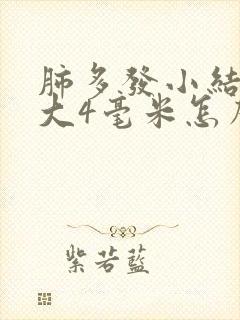 肺多發小結
大4毫米怎
紫若藍